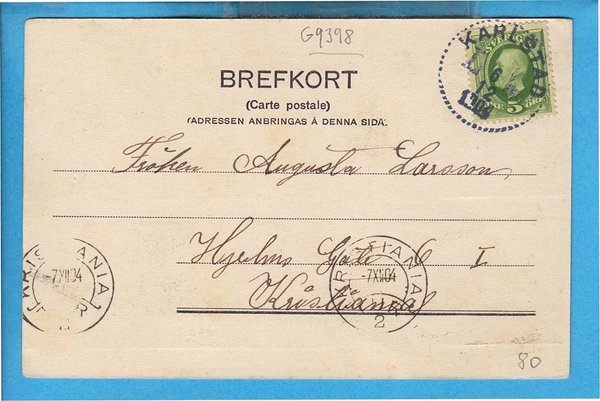 G9398
BREFKORT
(Carte postale)
(ADRESSEN ANBRINGAS Å DENNA SIDA)
KARLSTAD
6 12
SVERIGE
5 ÖRE
Fröken Augusta Larsson,
Hjelms Gate 6 I
Kristiania
KRISTIANIA
7XII04
2
KRISTIANIA
7XII04
2
80